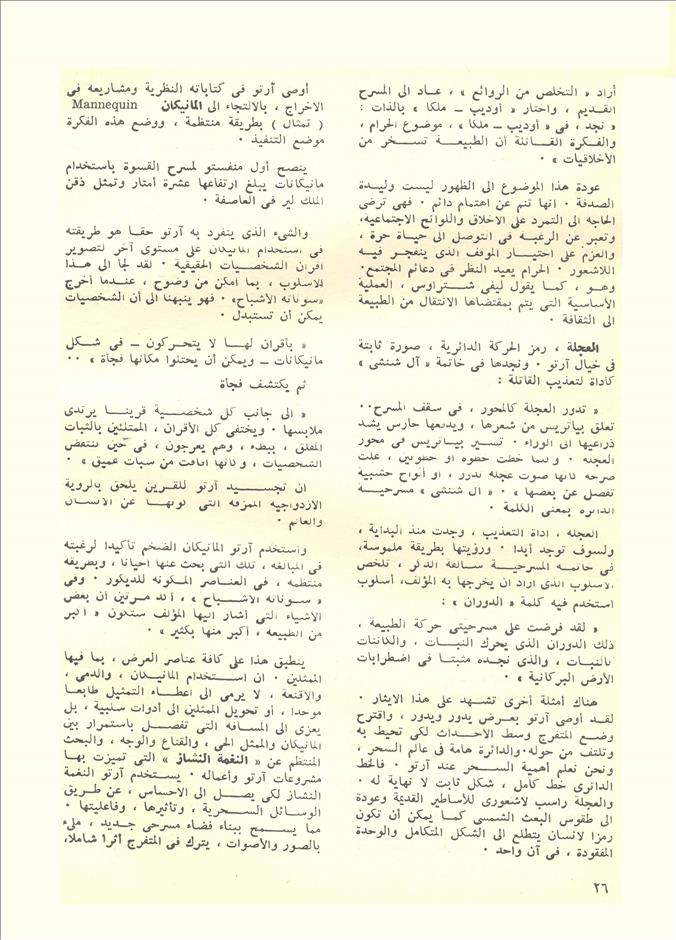 أراد « التخلص من الروائع » ، عـاد الى المسرح
القـديم ، واختـار « أوديب ـ ملكا » بالذات :
« نجد ، فى « أوديب ـ ملكا » ، موضوع الحرام ،
والفـكرة القـائلة أن الطبيعـة تسـخر من
الأخلاقيات » ·
عودة هذا الموضوع الى الظهور ليست وليـدة
الصدفة · انها تنم عن اهتمام دائم · فهى ترضى
الحاجه الى التمرد على الاخلاق واللوائح الاجتماعيه،
وتعبر عن الرغبـه فى التوصل الى حيـاة حرة ،
والعزم على اختيـار الموقف الذى ينفجـر فيـه
اللاشعور · الحرام يعيد النظر فى دعائم المجتمع·
وهـو ، كمـا يقول ليفى شـتراوس ، العمليـة
الأساسية التى يتم بمقتضاها الانتقال من الطبيعة
الى الثقافة ·
العجلة ، رمز الحركة الدائرية ، صورة ثابتة
فى خيال آرتو · ونجدها فى خاتمة « آل شنشى »
كأداة لتعذيب القاتلة :
« تدور العجلة كالمحور ، فى سقف المسرح··
تعلق بياتريس من شعرها ، ويدفعها حارس يشد
ذراعيها الى الوراء · تسـير بيـاتريس فى محور
العجله · وكلما خطت خطوه او خطوتين ، علت
صرخه كأنها صوت عجلة تدور ، أو ألواح خشبية
تفصل عن بعضها » · « آل شنشى » مسرحيـة
الدائره بمعنى الكلمة ·
العجله ، اداة التعذيب ، وجدت منذ البداية ،
ولسوف توجد أبدا · ورؤيتها بطريقة ملموسة،
فى خاتمـه المسرحيـة سـالفة الذكر ، تلخص
الاسلوب الذى اراد ان يخرجها به المؤلف، أسلوب
استخدم فيه كلمة « الدوران » :
« لقد فرضت على مسرحيتى حركة الطبيعة ،
ذلك الدوران الذى يحرك النبـات ، والكائنات
كالنبات ، والذى نجـده مثبتـا فى اضطرابات
الأرض البركانية » ·
هناك أمثلة أخرى تشـهد على هذا الايثار ·
لقـد أوصى آرتو بعـرض يدور ويدور ، واقترح
وضع المتفرج وسط الأحـداث لكى تحيط به
وتلتف من حوله·والدائرة هامة فى عالم السحر ،
ونحن نعلم أهمية السحر عند آرتو · فالخط
الدائرى خط كامل ، شكل ثابت لا نهاية له ·
والعجلة راسب لاشعورى للأساطير القديمة وعودة
الى طقوس البعث الشمسى كما يمكن أن تكون
رمزا لانسان يتطلع الى الشكل المتكامل والوحدة
المفقودة ، فى آن واحد ·
أوصى آرتو فى كتاباته النظرية ومشاريعه فى
الاخراج ، بالالتجاء الى المانيكان Mannequin
( تمثال ) بطريقة منتظمة ، ووضع هذه الفكرة
موضع التنفيذ ·
ينصح أول منفستو لمسرح القسوة باستخدام
مانيكانات يبلغ ارتفاعها عشرة أمتار وتمثل ذقن
الملك لير فى العاصفة ·
والشىء الذى ينفرد به آرتو حقـا هو طريقته
فى استخدام المانيكان على مستوى آخر لتصوير
أقران الشخصـيات الحقيقية · لقد لجأ الى هـذا
الاسلوب ، بما أمكن من وضوح ، عنـدما أخرج
«سوناته الأشباح» · فهو ينبهنا الى أن الشخصيات
يمكن أن تستبدل ·
« بأقران لهـا لا يتحركون ـ فى شـكل
مانيكانات ـ ويمكن أن يحتلوا مكانها فجأة » ··
ثم يكتشف فجأة
« الى جانب كل شخصـية قرينـا يرتدى
ملابسها · ويختفى كل الأقران ، الممتلئين بالثبات
المقلق ، ببطء ، وهم يعرجون ، فى حين تنتفض
الشخصيات ، وكأنها أفاقت من سبات عميق » ·
ان تجسـيد آرتو للقـرين يلحق بالرؤية
الازدواجيه الممزقه التى كونها عن الانسـان
والعالم ·
واستخدم آرتو المانيكان الضخم تأكيدا لرغبته
فى المبالغه ، تلك التى بحث عنها أحيانا ، وبطريقه
منتظمه ، فى العناصر المكونه للديكور · وفى
« سـوناته الأشـباح » ، أكد مرتين أن بعض
الأشياء التى أشار اليها المؤلف ستكون « أكبر
من الطبيعه ، أكبر منها بكثير » ·
ينطبق هذا على كافة عناصر العرض ، بما فيها
الممثلين · ان اسـتخدام المانيـكان ، والدمى ،
والأقنعة ، لا يرمى الى اعطـاء التمثيل طابعـا
موحدا ، أو تحويل الممثلين الى أدوات سلبية ، بل
يعزى الى المسـافه التى تفصـل باستمرار بين
المانيكان والممثل الحى ، والقناع والوجه ، والبحث
المنتظم عن « النغمة النشاز » التى تميزت بهـا
مشروعات آرتو وأعماله · يسـتخدم آرتو النغمة
النشاز لكى يصـل الى الاحساس ، عن طـريق
الوسـائل السـحرية ، وتأثيرها ، وفاعليتها ·
مما يسـمح ببناء فضاء مسرحى جـديد ، ملىء
بالصور والأصوات ، يترك فى المتفرج أثرا شاملا،
٢٦